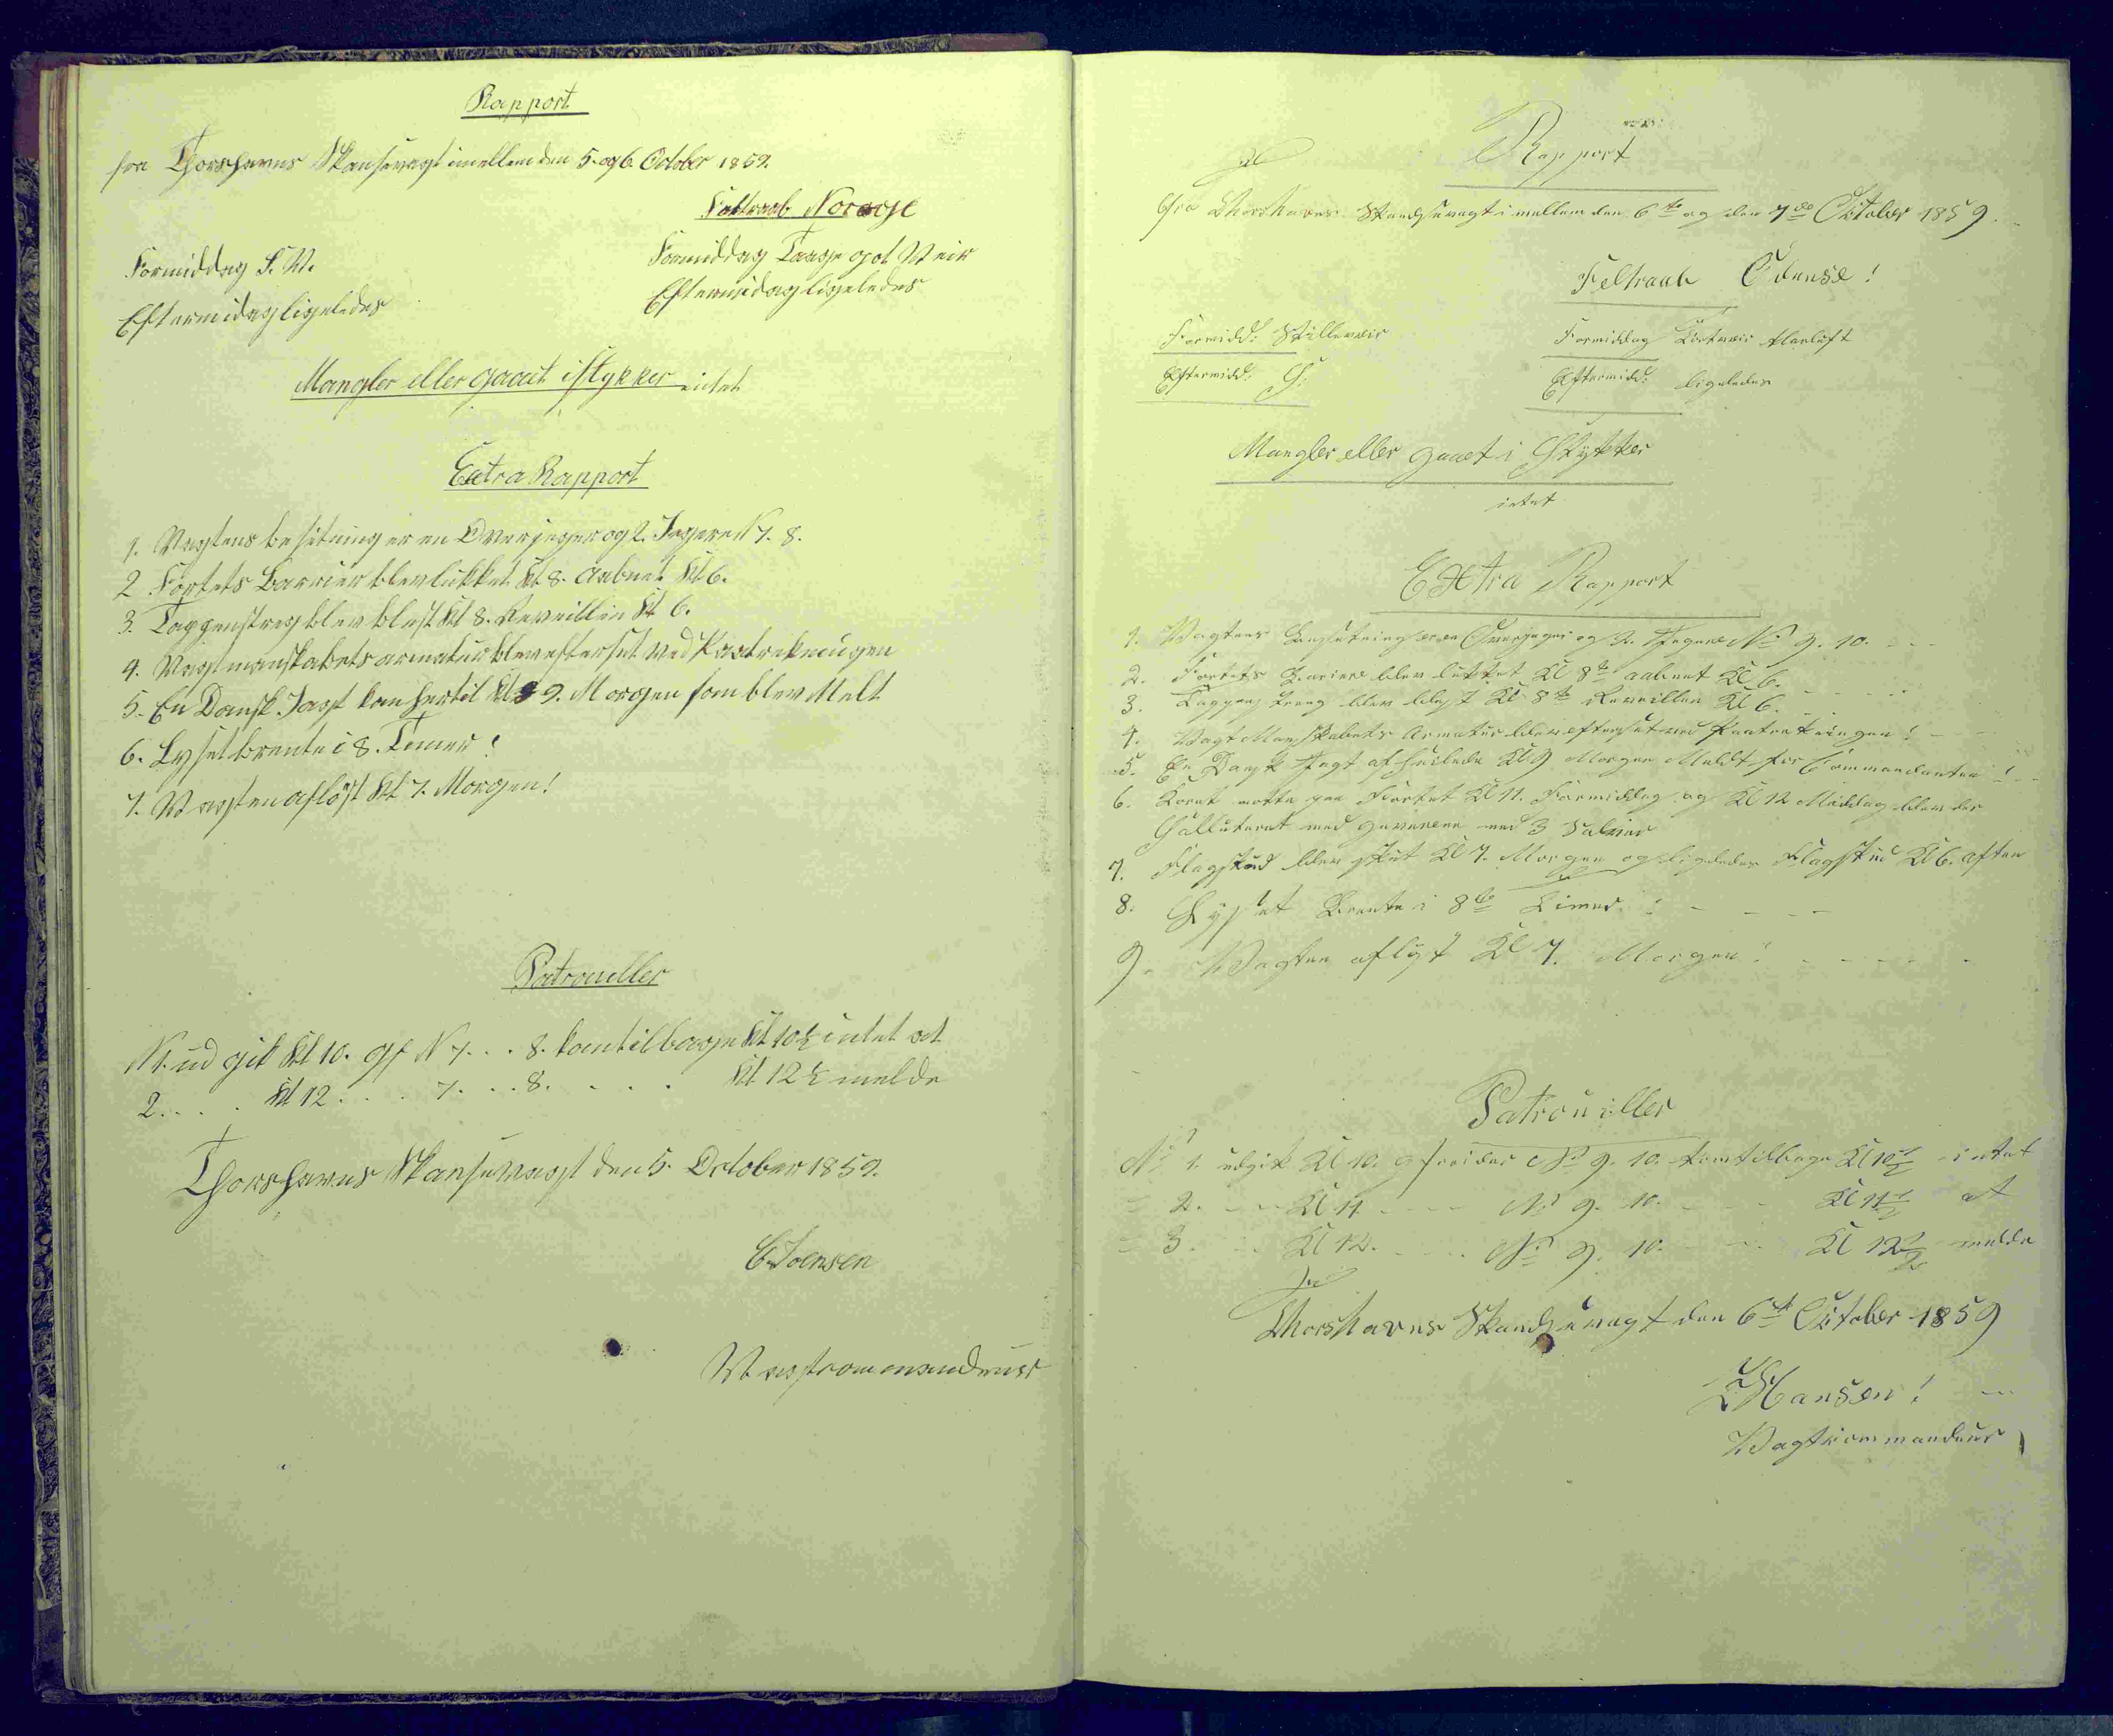 Rapport
fra Thorshavns Skansevagt imellem den 5. og 6. October 1859.
Feltraab Noroge
Formiddag S. W.
Formiddag Taage got Veir
Eftermidag ligeledes
Eftermidag ligeledes
Mangler eller gaaet i stykker intet
Extra Rapport
1. Vagtens besetning er en Overjeger og 2. Jegere N 7. 8.
2 Fortets Barrier blev lukket Kl 8. aabnet Kl 6.
3. Tappenstreg blev blest Kl 8. Reveillen Kl 6.
4. Vagtmanskabets armatur blev efterset ved Paatrekningen
5. En Dansk Jagt kom hertil Kl 9. Morgen som blev Melt
6. Lyset brente i 8. Timer!
7. Vagten afløst Kl 7. Morgen!
Patrouller
N 1. ud gik Kl 10. gf N 7. . . 8. kom tilbage Kl 10½ intet at
2. . . . Kl 12 . . . 7. . . 8. . . . Kl 12½ melde
Thorshavns Skansevagt den 5. October 1859.
C. Joensen
Vagtcommandeur
Rapport
Fra Thorshavns Skandsevagt imellem den 6te og den 7de October 1859.
Feltraab Odense!
Formidd: Stilleveir
Formiddag Tørtveir Klarluft
Eftermidd: S:
Eftermidd: ligeledes
Mangler eller gaaet i Stykker
intet
Extra Rapport
1. Vagtens Besetning er en Overjeger og 2. Jegere No 9. 10. - - -
2. Fortets Bariere blev lukket Kl 8te aabnet Kl 6.
3. Tappenstreeg blev blest Kl 8te Reveillen Kl 6.
4. Vagt Manskabets Armatur blev efterset ved Paatrekningen! - -
5. En Dansk Jagt afseilede Kl 9 Morgen Meldt for Commandanten! - -
6. Koret motte paa Fortet Kl 11. Formiddag og Kl 12 Middag blev der
Salluteret med geverene med 3 Salver
7. Flagskud blev skut Kl 7. Morgen og ligeledes Flagskud Kl 6. aften
8. Lyset Brente i 8te Timer! - - - -
9. Vagten afløst Kl 7. Morgen! - - - - -
Patrouiller
No 1. udgik Kl 10. gfreider No 9. 10. kom tilbage Kl 10½ intet
= 2. - - Kl 11. - - - - No 9. 10. - - - - Kl 11½ at
= 3. - - Kl 12. - - - - No 9. 10. - - - - Kl 12½ melde
Thorshavns Skandsevagt den 6te October 1859
Hansen!
Vagtcommandeur